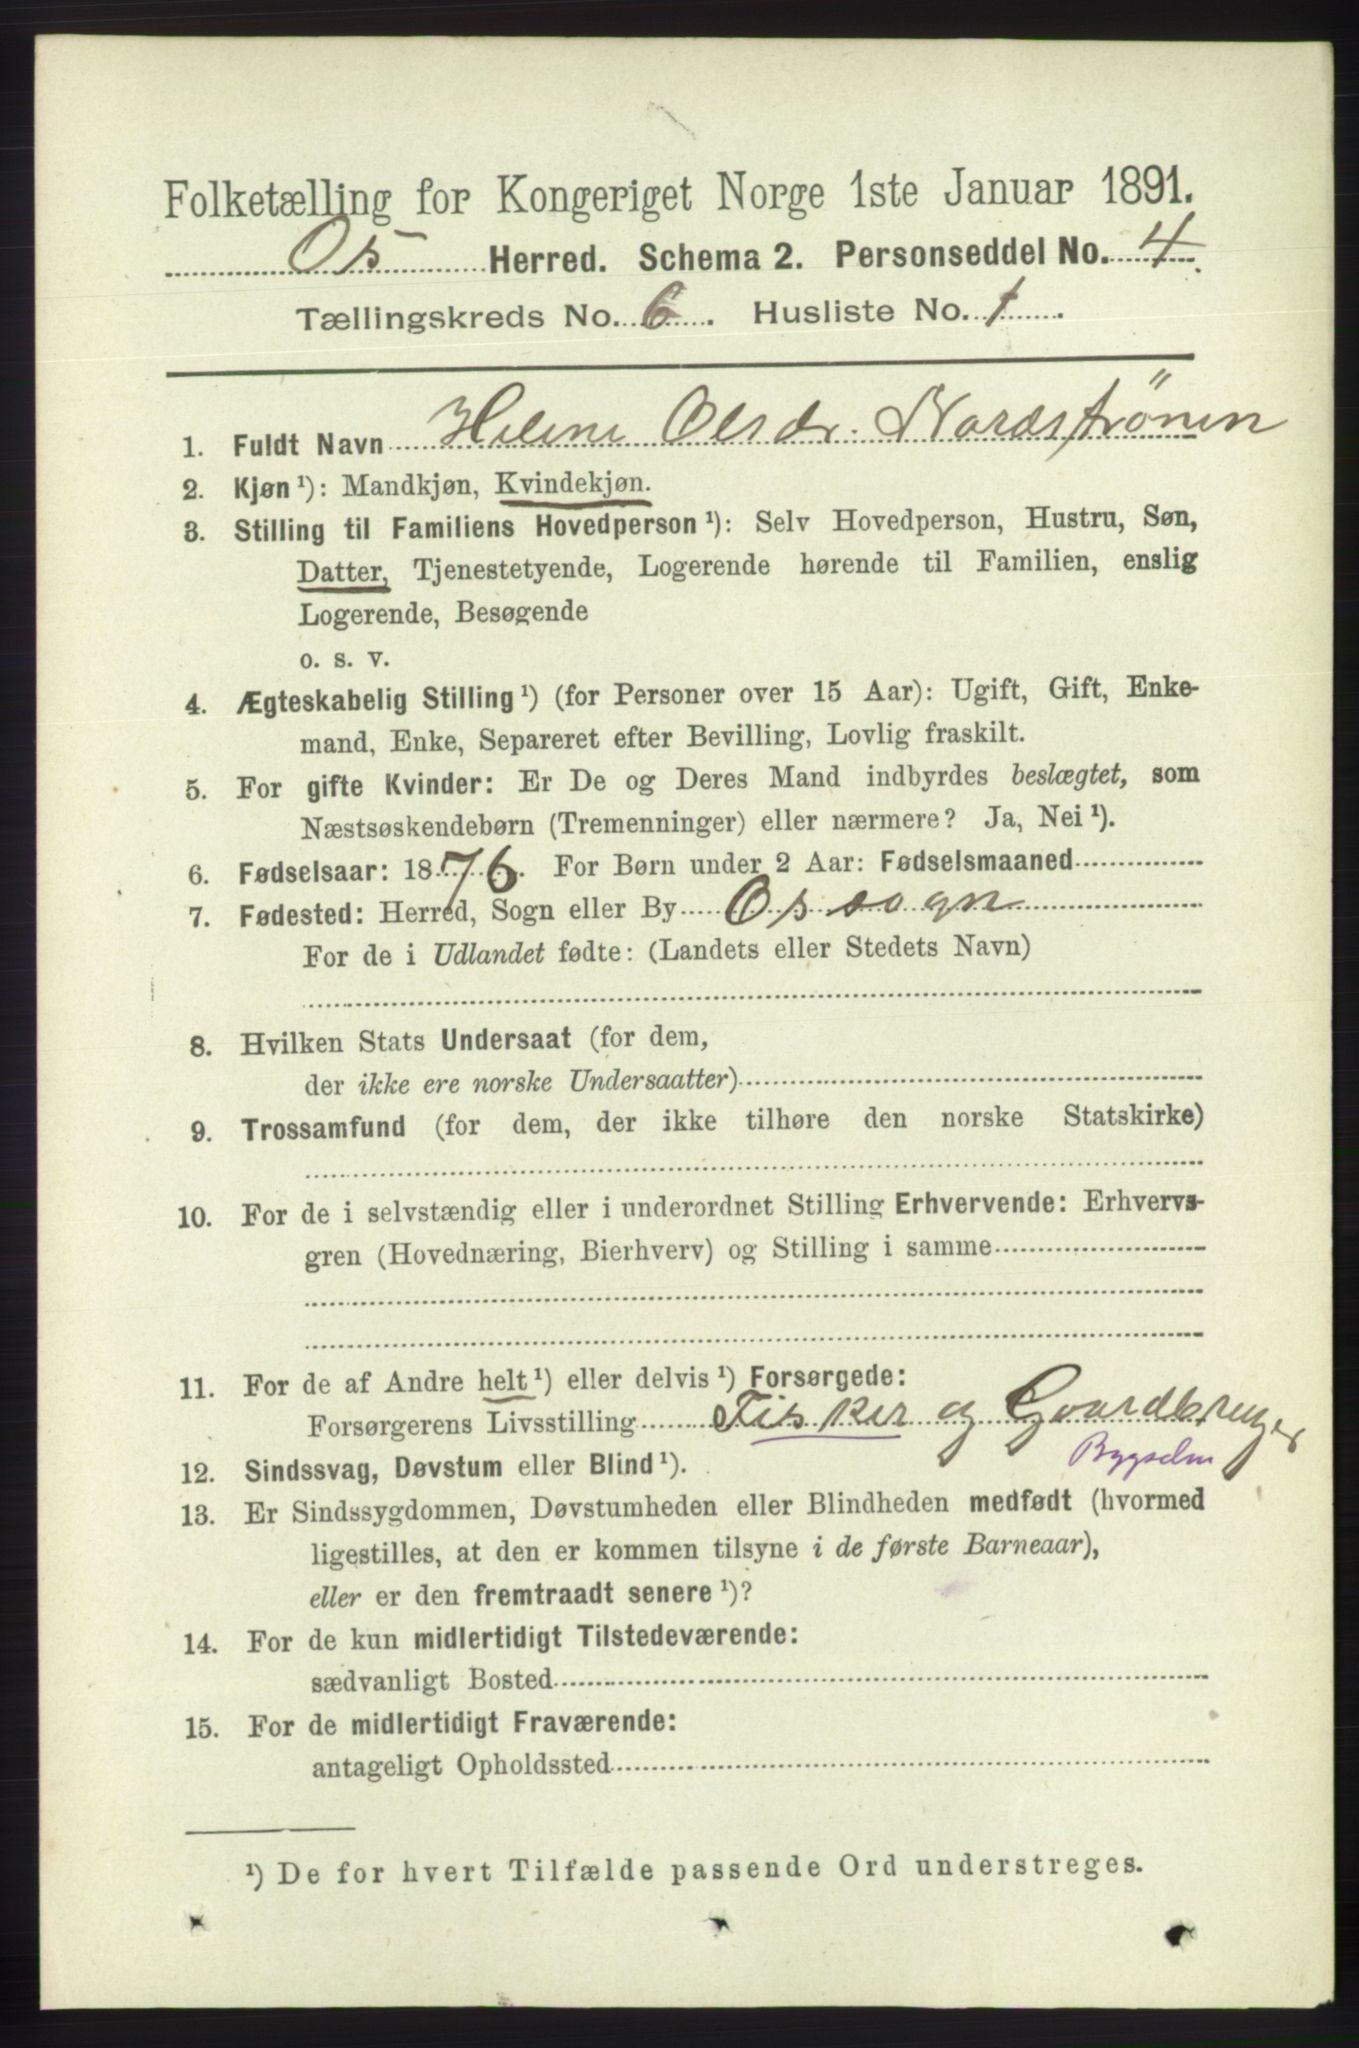 Folketælling for Kongeriget Norge 1ste Januar 1891.
Os Herred. Schema 2. Personseddel No. 4.
Tællingskreds No. 6. Husliste No. 1.
1. Fuldt Navn Helene Olsdr. Nordstrønen
2. Kjøn ¹): Mandkjøn, Kvindekjøn.
3. Stilling til Familiens Hovedperson ¹): Selv Hovedperson, Hustru, Søn,
Datter, Tjenestetyende, Logerende hørende til Familien, enslig
Logerende, Besøgende
o. s. v.
4. Ægteskabelig Stilling ¹) (for Personer over 15 Aar): Ugift, Gift, Enke-
mand, Enke, Separeret efter Bevilling, Lovlig fraskilt.
5. For gifte Kvinder: Er De og Deres Mand indbyrdes beslægtet, som
Næstsøskendebørn (Tremenninger) eller nærmere? Ja, Nei ¹).
6. Fødselsaar: 1876. For Børn under 2 Aar: Fødselsmaaned
7. Fødested: Herred, Sogn eller By Os sogn
For de i Udlandet fødte: (Landets eller Stedets Navn)
8. Hvilken Stats Undersaat (for dem,
der ikke ere norske Undersaatter)
9. Trossamfund (for dem, der ikke tilhøre den norske Statskirke)
10. For de i selvstændig eller i underordnet Stilling Erhvervende: Erhvervs-
gren (Hovednæring, Bierhverv) og Stilling i samme
11. For de af Andre helt ¹) eller delvis ¹) Forsørgede:
Forsørgerens Livsstilling Fisker og Gaardbruger
Bygselm
12. Sindssvag, Døvstum eller Blind ¹).
13. Er Sindssygdommen, Døvstumheden eller Blindheden medfødt (hvormed
ligestilles, at den er kommen tilsyne i de første Barneaar),
eller er den fremtraadt senere ¹)?
14. For de kun midlertidigt Tilstedeværende:
sædvanligt Bosted
15. For de midlertidigt Fraværende:
antageligt Opholdssted
¹) De for hvert Tilfælde passende Ord understreges.